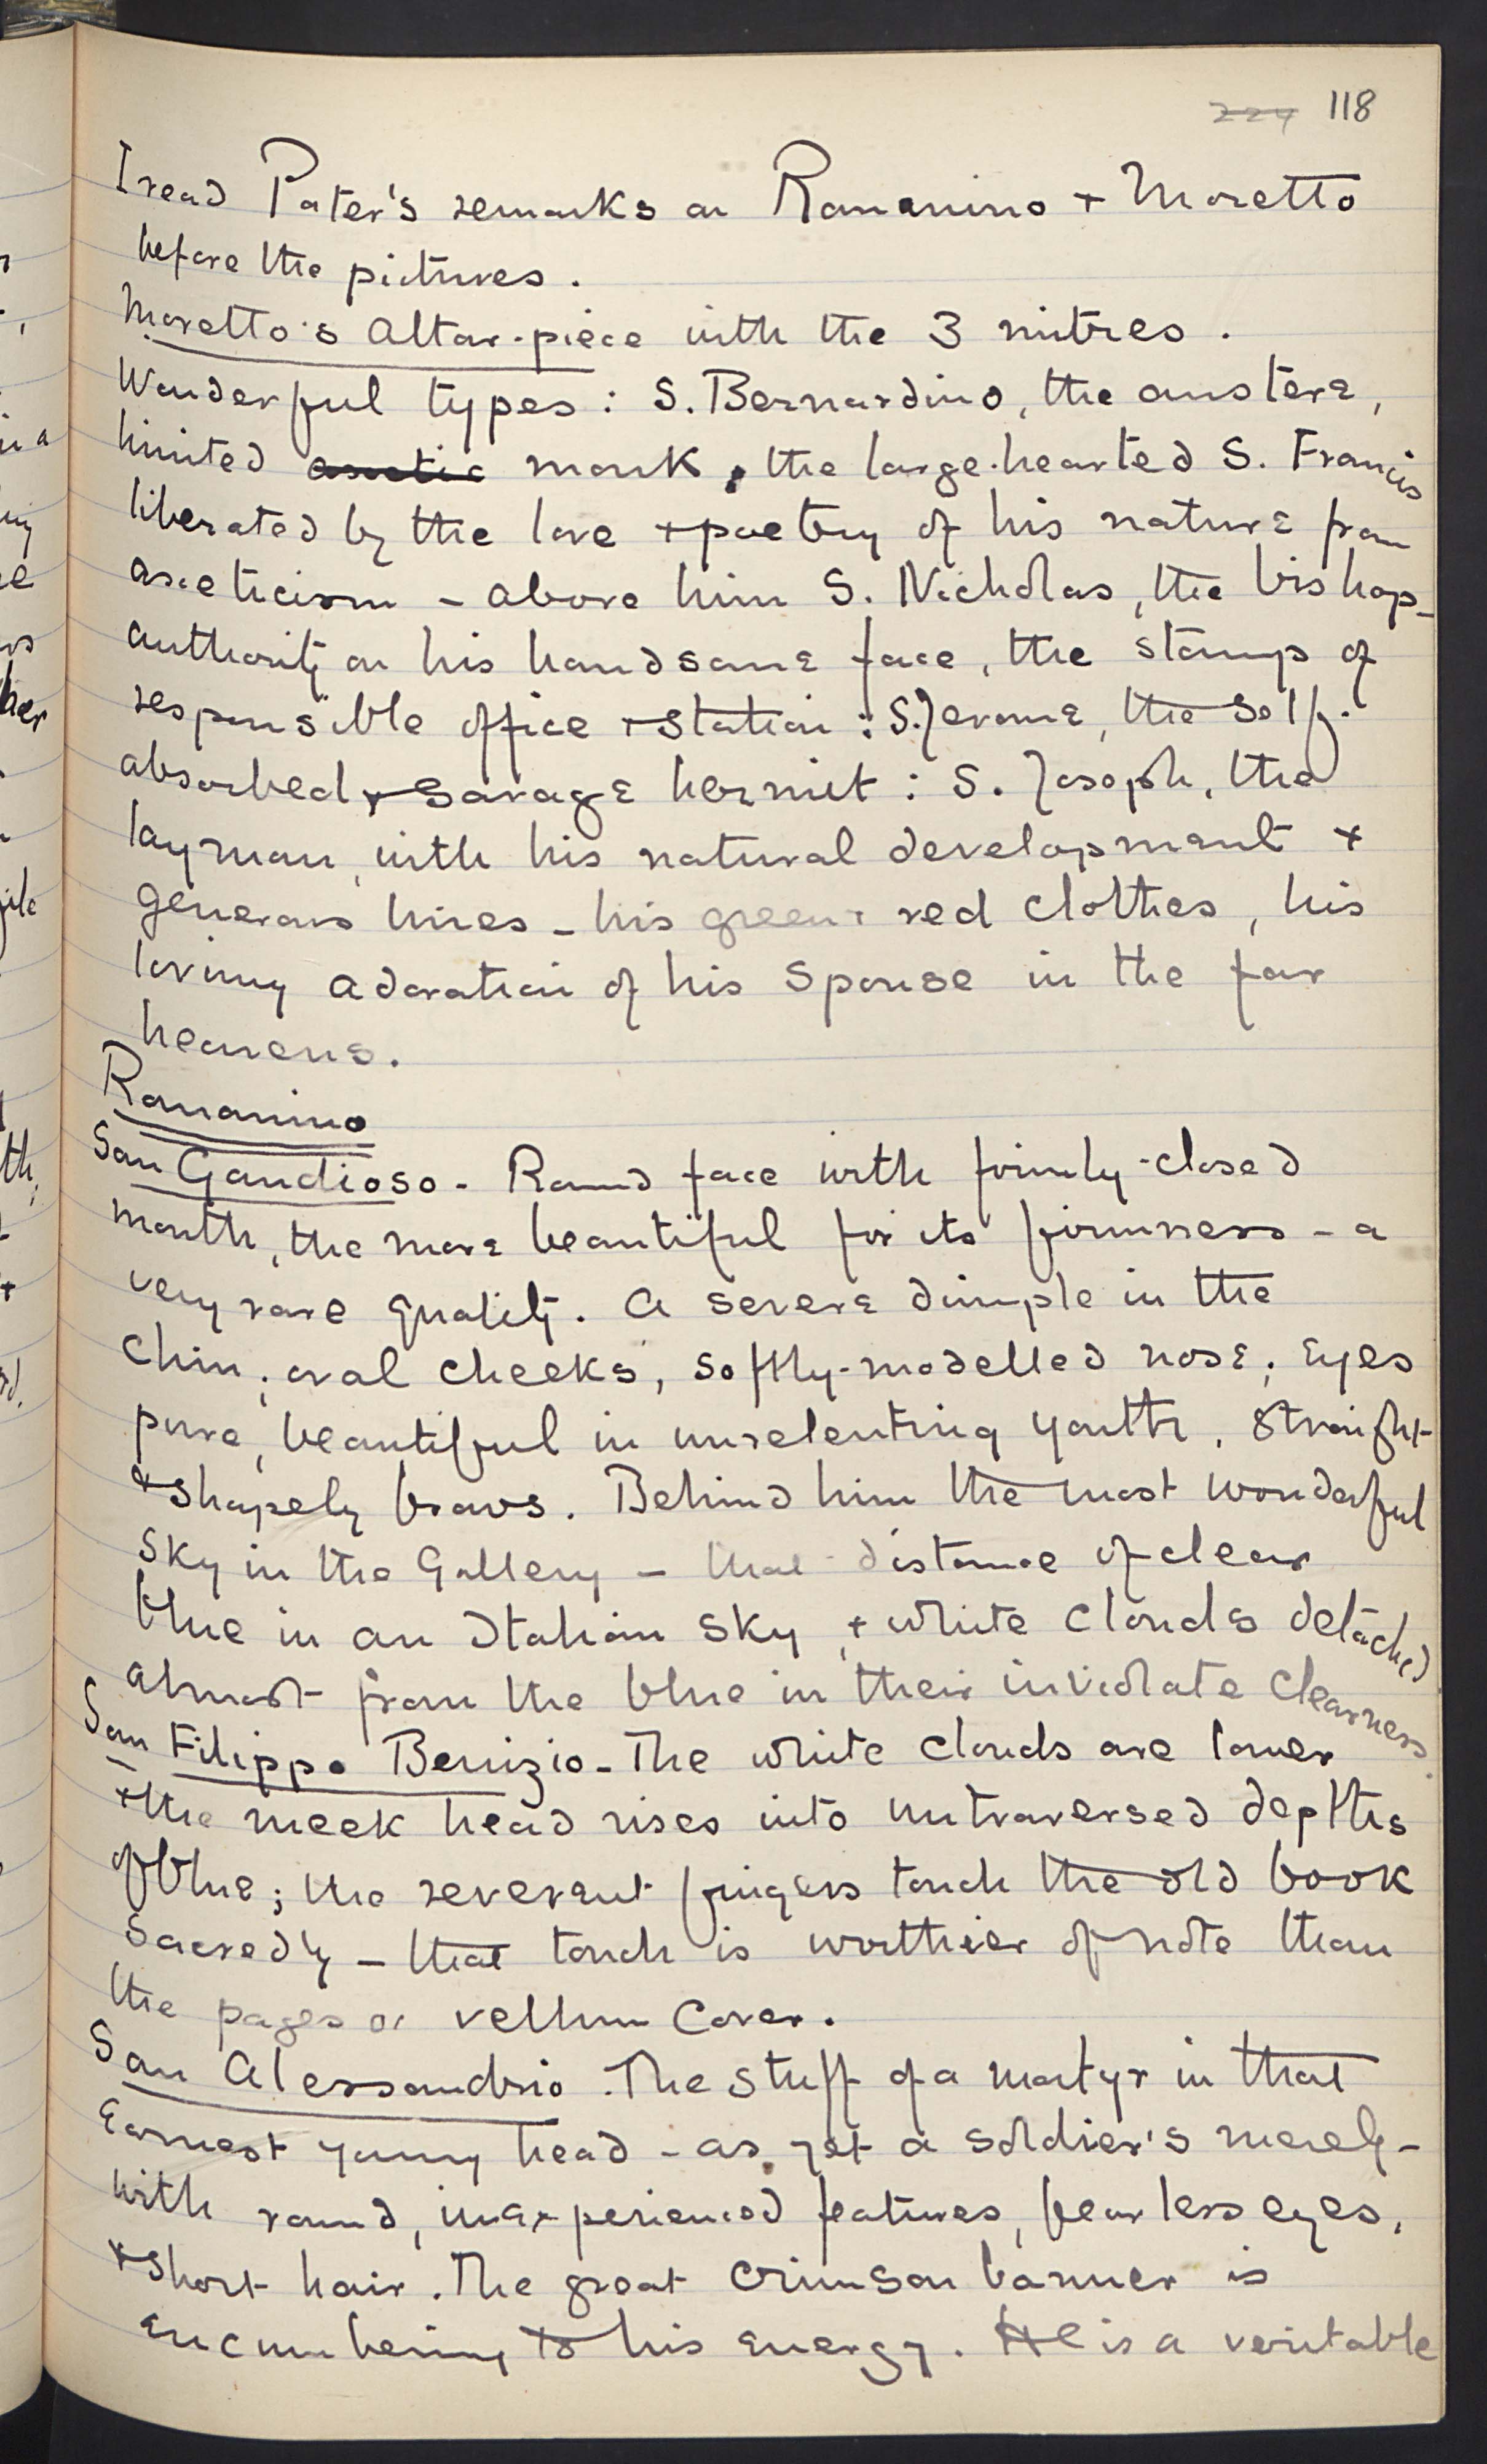 229 118
I read Pater's remarks on Romanino + Moretto
before the pictures.
Moretto's Altar-piece with the 3 mitres.
Wonderful types: S. Bernardino, the austere,
limited ascetic monk, the large-hearted S. Francis
liberated by the love + poetry of his nature from
asceticism - above him S. Nicholas, the bishop -
authority on his handsome face, the stamp of
responsible office + station: S. Jerome, the self-
absorbed + savage hermit: S. Joseph, the
layman, with his natural development +
generous lines - his green + red clothes, his
loving adoration of his Spouse in the far
heavens.
Romanino
San Gaudioso - Round face with firmly-closed
mouth, the more beautiful for its firmness - a
very rare quality. A severe dimple in the
chin, oval cheeks, softly-modelled nose; eyes
pure, beautiful in unrelenting youth, straight
+ shapely brows. Behind him the most wonderful
sky in the Gallery - that distance of clear
blue in an Italian sky, + white clouds detached
almost from the blue in their inviolate clearness.
San Filippo Benizio - The white clouds are lower
+ the meek head rises into untraversed depths
of blue; the reverent fingers touch the old book
sacredly - that touch is worthier of note than
the pages or vellum cover.
San Alessandrio. The stuff of a martyr in that
earnest young head - as yet a soldier's merely -
with round, inexperienced features, fearless eyes,
+ short hair. The great crimson banner is
encumbering to his energy. He is a veritable